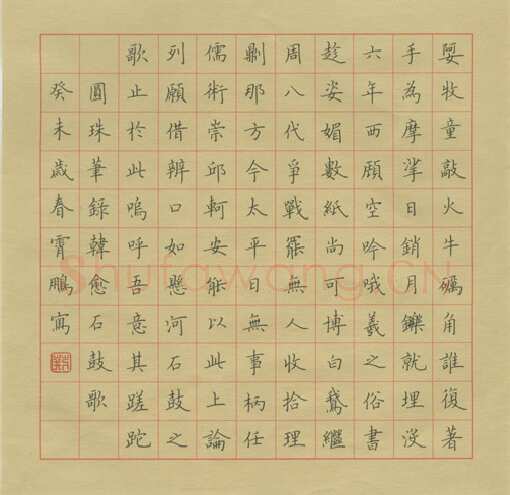 娿牧童敲火牛礪角誰復著
手為摩挲日銷月鑠就埋沒
六年西顧空吟哦羲之俗書
趁姿媚數紙尚可博白鵞繼
周八代爭戰罷無人收拾理
則那方今太平日無事柄任
儒術崇邱軻安能以此上論
列願借辨口如懸河石鼓之
歌止於此嗚呼吾意其蹉跎
圓珠筆錄韓愈石鼓歌
癸未歲春霄鵬寫
Shufawang.CN